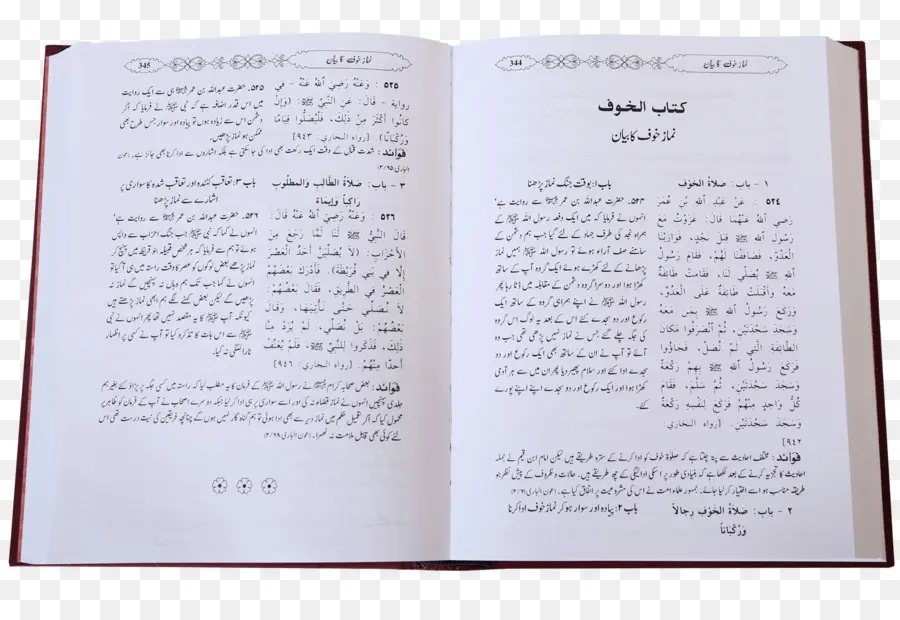 نماز خوف کا بیان
344
كتاب الخوف
نماز خوف کا بیان
١ - باب: صَلاَةُ الخَوْفِ
٥٢٤ : عَنْ عَبْدِ اللهِ بْنِ عُمَرَ
رَضِيَ اللهُ عَنْهُمَا قَالَ: غَزَوْتُ مَعَ
رَسُولِ اللهِ ﷺ قِبَلَ نَجْدٍ، فَوَازَيْنَا
العَدُوَّ، فَصَافَفْنَا لَهُمْ، فَقَامَ رَسُولُ
اللهِ ﷺ يُصَلِّي لَنَا، فَقَامَتْ طَائِفَةٌ
مَعَهُ وَأَقْبَلَتْ طَائِفَةٌ عَلَى العَدُوِّ،
وَرَكَعَ رَسُولُ اللهِ ﷺ بِمَنْ مَعَهُ
وَسَجَدَ سَجْدَتَيْنِ، ثُمَّ انْصَرَفُوا مَكَانَ
الطَّائِفَةِ الَّتِي لَمْ تُصَلِّ، فَجَاؤُوا
فَرَكَعَ رَسُولُ اللهِ ﷺ بِهِمْ رَكْعَةً
وَسَجَدَ سَجْدَتَيْنِ، ثُمَّ سَلَّمَ، فَقَامَ
كُلُّ وَاحِدٍ مِنْهُمْ فَرَكَعَ لِنَفْسِهِ رَكْعَةً
وَسَجَدَ سَجْدَتَيْنِ. [رواه البخاري:
٩٤٢]
باب ۱: بوقت جنگ نماز پڑھنا
حضرت عبداللہ بن عمر ؓ سے روایت ہے‘
انہوں نے فرمایا کہ میں ایک دفعہ رسول اللہ ﷺ کے
ہمراہ نجد کی طرف جہاد کے لئے گیا جب ہم دشمن کے
سامنے صف آراء ہوئے تو رسول اللہ ﷺ ہمیں نماز
پڑھانے کے لئے کھڑے ہوئے ایک گروہ آپ کے ساتھ
کھڑا ہوا اور دوسرا گروہ دشمن کے مقابلہ میں ڈٹا رہا پھر
رسول اللہ ﷺ نے اپنے ہمراہی گروہ کے ساتھ ایک
رکوع اور دو سجدے کئے اس کے بعد یہ لوگ اس گروہ
کی جگہ چلے گئے جس نے نماز نہیں پڑھی تھی جب وہ
آئے تو آپ نے ان کے ساتھ بھی ایک رکوع اور دو
سجدے ادا کئے اور سلام پھیر دیا پھر ان میں سے ہر آدمی
کھڑا ہوا اور ایک رکوع اور دو سجدے اپنے اپنے پورے
کئے۔
فوائد: مختلف احادیث سے پتہ چلتا ہے کہ صلوٰۃ خوف کو ادا کرنے کے سترہ طریقے ہیں لیکن امام ابن قیم نے جملہ
احادیث کا تجزیہ کرنے کے بعد لکھا ہے کہ بنیادی طور پر اسکی ادائیگی کے چھ طریقے ہیں۔ حالات و ظروف کے پیش نظر جو
طریقہ مناسب ہو اسے اختیار کر لیا جائے۔ جمہور علماء امت نے اس کی مشروعیت پر اتفاق کیا ہے۔ (عون الباری ۲/۶۱)
٢ - باب: صَلاَةُ الخَوْفِ رِجالاً
وَرُكْبَاناً
باب ۲: پیادہ اور سوار ہو کر نماز خوف ادا کرنا
نماز خوف کا بیان
345
٥٢٥ : وَعَنْهُ رَضِيَ اللهُ عَنْهُ - في
رواية - قَالَ: عَنِ النَّبِيِّ ﷺ: (وَإِنْ
كَانُوا أَكْثَرَ مِنْ ذلِكَ، فَلْيُصَلُّوا قِيَامًا
وَرُكْبَانًا). [رواه البخاري: ٩٤٣]
۵۲۵۔ حضرت عبداللہ بن عمر ؓ ہی سے ایک روایت
میں اس قدر اضافہ ہے کہ نبی ﷺ نے فرمایا کہ اگر
دشمن اس سے زیادہ ہوں تو پیادہ اور سوار جس طرح بھی
ممکن ہو نماز پڑھیں۔
فوائد: شدت قتال کے وقت ایک رکعت بھی ادا کی جا سکتی ہے بلکہ اشاروں سے ادا کرنا بھی جائز ہے۔ (عون
الباری ۲/۶۵)
٣ - باب: صَلاَةُ الطَّالِبِ وَالمَطْلُوبِ
رَاكِباً وَإِيمَاءً
٥٢٦ : وَعَنْهُ رَضِيَ اللهُ عَنْهُ قَالَ:
قَالَ النَّبِيُّ ﷺ لَنَا لَمَّا رَجَعَ مِنَ
الأَحْزَابِ: (لاَ يُصَلِّيَنَّ أَحَدٌ الْعَصْرَ
إِلَّا في بَنِي قُرَيْظَةَ). فَأَدْرَكَ بَعْضُهُمْ
العَصْرَ في الطَّرِيقِ، فَقَالَ بَعْضُهُمْ:
لاَ نُصَلِّي حَتَّى نَأْتِيَهَا، وَقَالَ
بَعْضُهُمْ: بَلْ نُصَلِّي، لَمْ يُرَدْ مِنَّا
ذلِكَ، فَذَكَرُوا لِلنَّبِيِّ ﷺ، فَلَمْ يُعَنِّفْ
أَحَدًا مِنْهُمْ. [رواه البخاري: ٩٤٦]
باب ۳: تعاقب کنندہ اور تعاقب شدہ کا سواری پر
اشارے سے نماز پڑھنا
۵۲۶۔ حضرت عبداللہ بن عمر ؓ سے روایت ہے‘
انہوں نے فرمایا کہ نبی ﷺ جب جنگ احزاب سے واپس
ہوئے تو ہم سے فرمایا کہ ہر شخص قبیلہ بنو قریظہ میں پہنچ کر
نماز پڑھے بعض لوگوں کو عصر کا وقت راستہ میں ہی آگیا تو
انہوں نے کہا جب تک ہم وہاں نہ پہنچیں گے نماز نہ
پڑھیں گے لیکن بعض کہنے لگے ہم ابھی نماز پڑھتے ہیں
کیونکہ آپ کا یہ مقصد نہیں تھا پھر انہوں نے نبی
ﷺ سے اس بات کا تذکرہ کیا تو آپ نے کسی پر اظہار
ناراضگی نہ کیا۔
فوائد: بعض صحابہ کرام نے رسول اللہ ﷺ کے فرمان کا یہ مطلب لیا کہ راستہ میں کسی جگہ پر پڑاؤ کئے بغیر ہم
جلدی پہنچیں انہوں نے نماز قضاء نہ کی اور اسے سواری پر ہی ادا کر لیا جبکہ دوسرے اصحاب نے آپ کے فرمان کو ظاہر پر
محمول کیا کہ اگر تعمیل حکم میں نماز دیر سے بھی ادا ہوئی تو ہم گناہ گار نہیں ہوں گے چنانچہ فریقین کی نیت درست تھی اس
لئے کوئی بھی قابل ملامت نہ ٹھہرا۔ (عون الباری ۲/۶۹)